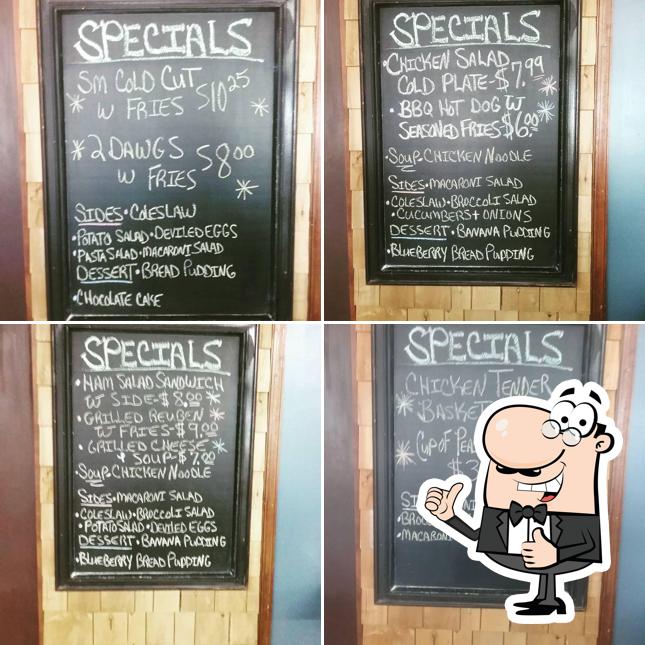 SPECIALS
SM COLD CUT
W FRIES $10 25
* 2 DAWGS $8 00
W FRIES
SIDES • COLESLAW
• POTATO SALAD • DEVILED EGGS
• PASTA SALAD • MACARONI SALAD
DESSERT • BREAD PUDDING
• CHOCOLATE CAKE
SPECIALS
• CHICKEN SALAD
COLD PLATE - $7.99
• BBQ HOT DOG W
SEASONED FRIES - $6.00
• SOUP - CHICKEN NOODLE
SIDES • MACARONI SALAD
• COLESLAW • BROCCOLI SALAD
• CUCUMBERS + ONIONS
DESSERT • BANANA PUDDING
• BLUEBERRY BREAD PUDDING
SPECIALS
• HAM SALAD SANDWICH
W SIDE - $8.00
• GRILLED REUBEN
W FRIES - $9.00
• GRILLED CHEESE
& SOUP - $7.00
• SOUP - CHICKEN NOODLE
SIDES • MACARONI SALAD
• COLESLAW • BROCCOLI SALAD
• POTATO SALAD • DEVILED EGGS
DESSERT • BANANA PUDDING
• BLUEBERRY BREAD PUDDING
SPECIALS
CHICKEN TENDER
BASKET
CUP OF
• MACARONI